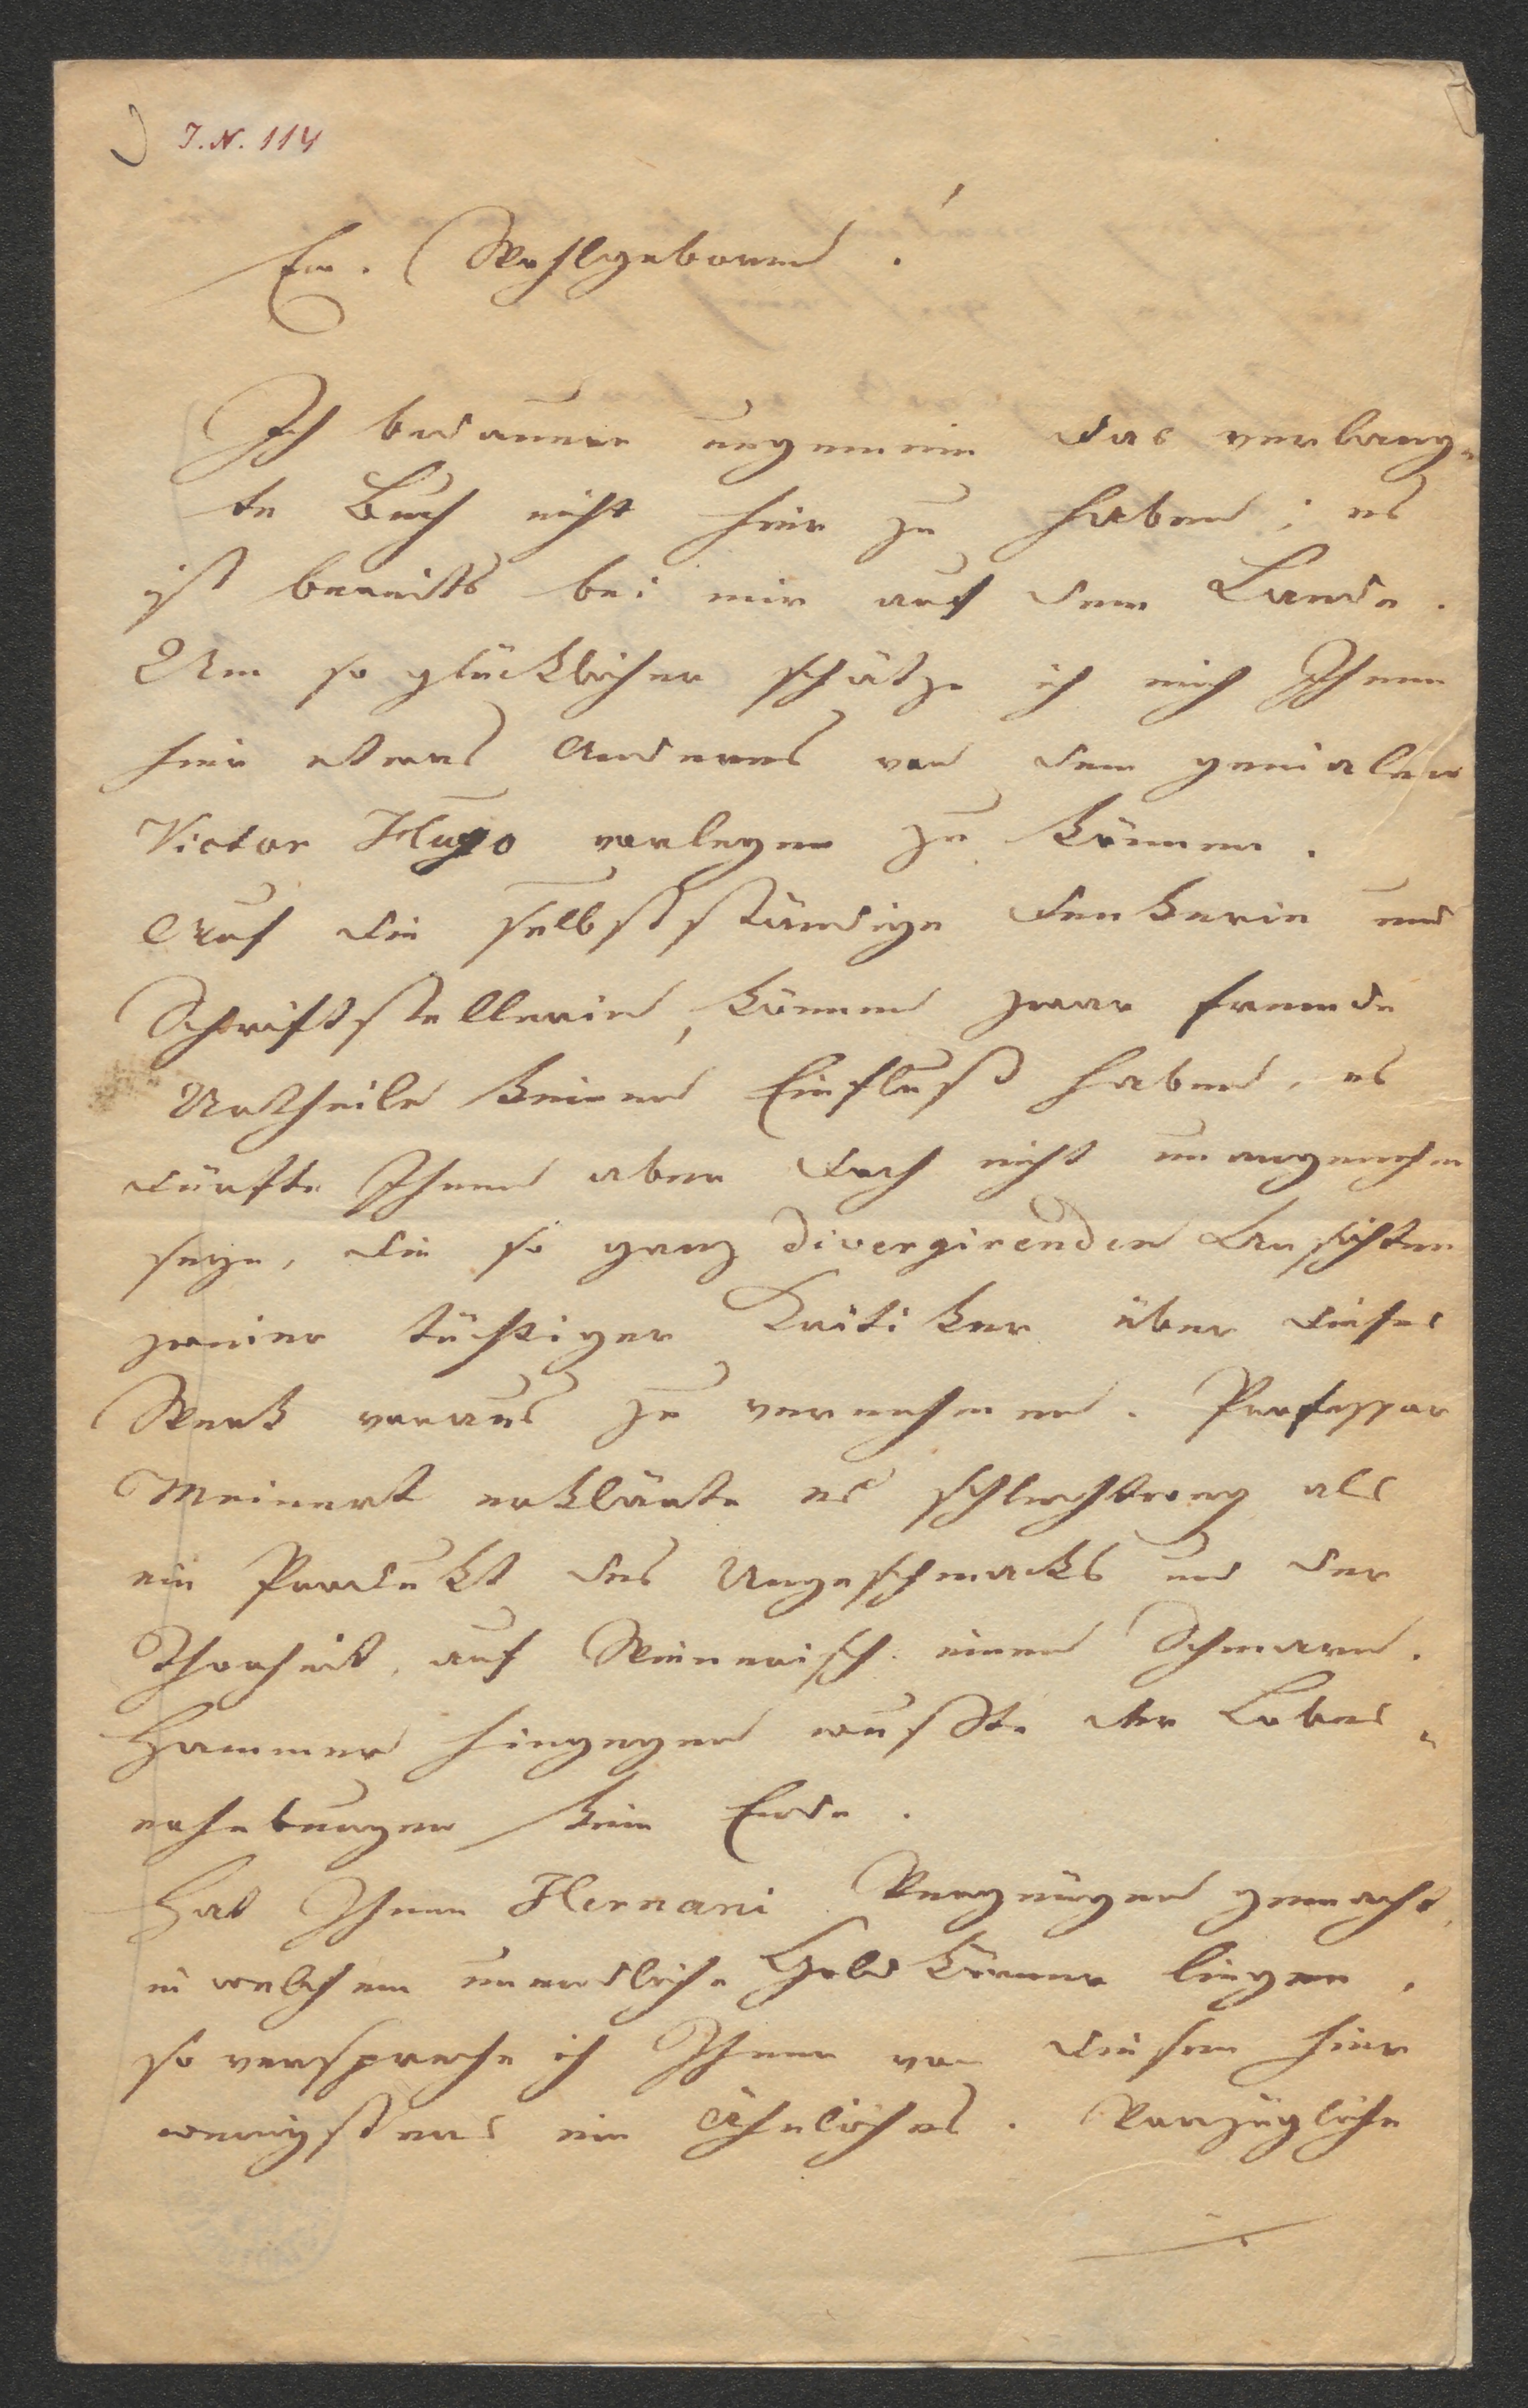 I.N. 114
Ew. Wohlgeboren!
Ich bedauere ungemein das verlang=
te Buch nicht hier zu haben; es
ist bereits bei mir auf dem Lande.
Um so glücklicher schätze ich mich Ihnen
hier etwas Anderes von dem genialen
Victor Hugo vorlegen zu können.
Auf die selbstständige Denkerin und
Schriftstellerin, können zwar fremde
Urtheile keinen Einfluß haben, es
dürfte Ihnen aber doch nicht unangenehm
seyn, die so ganz divergirenden Ansichten
zweier tüchtiger Kritiker über dieses
Werk voraus zu vernehmen. Professor
Meinert erklärte es schlechtweg als
ein Produkt des Ungeschmacks und der
Thorheit, auf Wienerisch einen Schmarn.
Hammer hingegen wußte der Lobes=
erhebungen kein Ende.
Hat Ihnen Hernani Vergnügen gemacht,
in welchem unendliche Goldkörner liegen,
so verspreche ich Ihnen von diesem hier
wenigstens ein Ähnliches. Vorzügliche